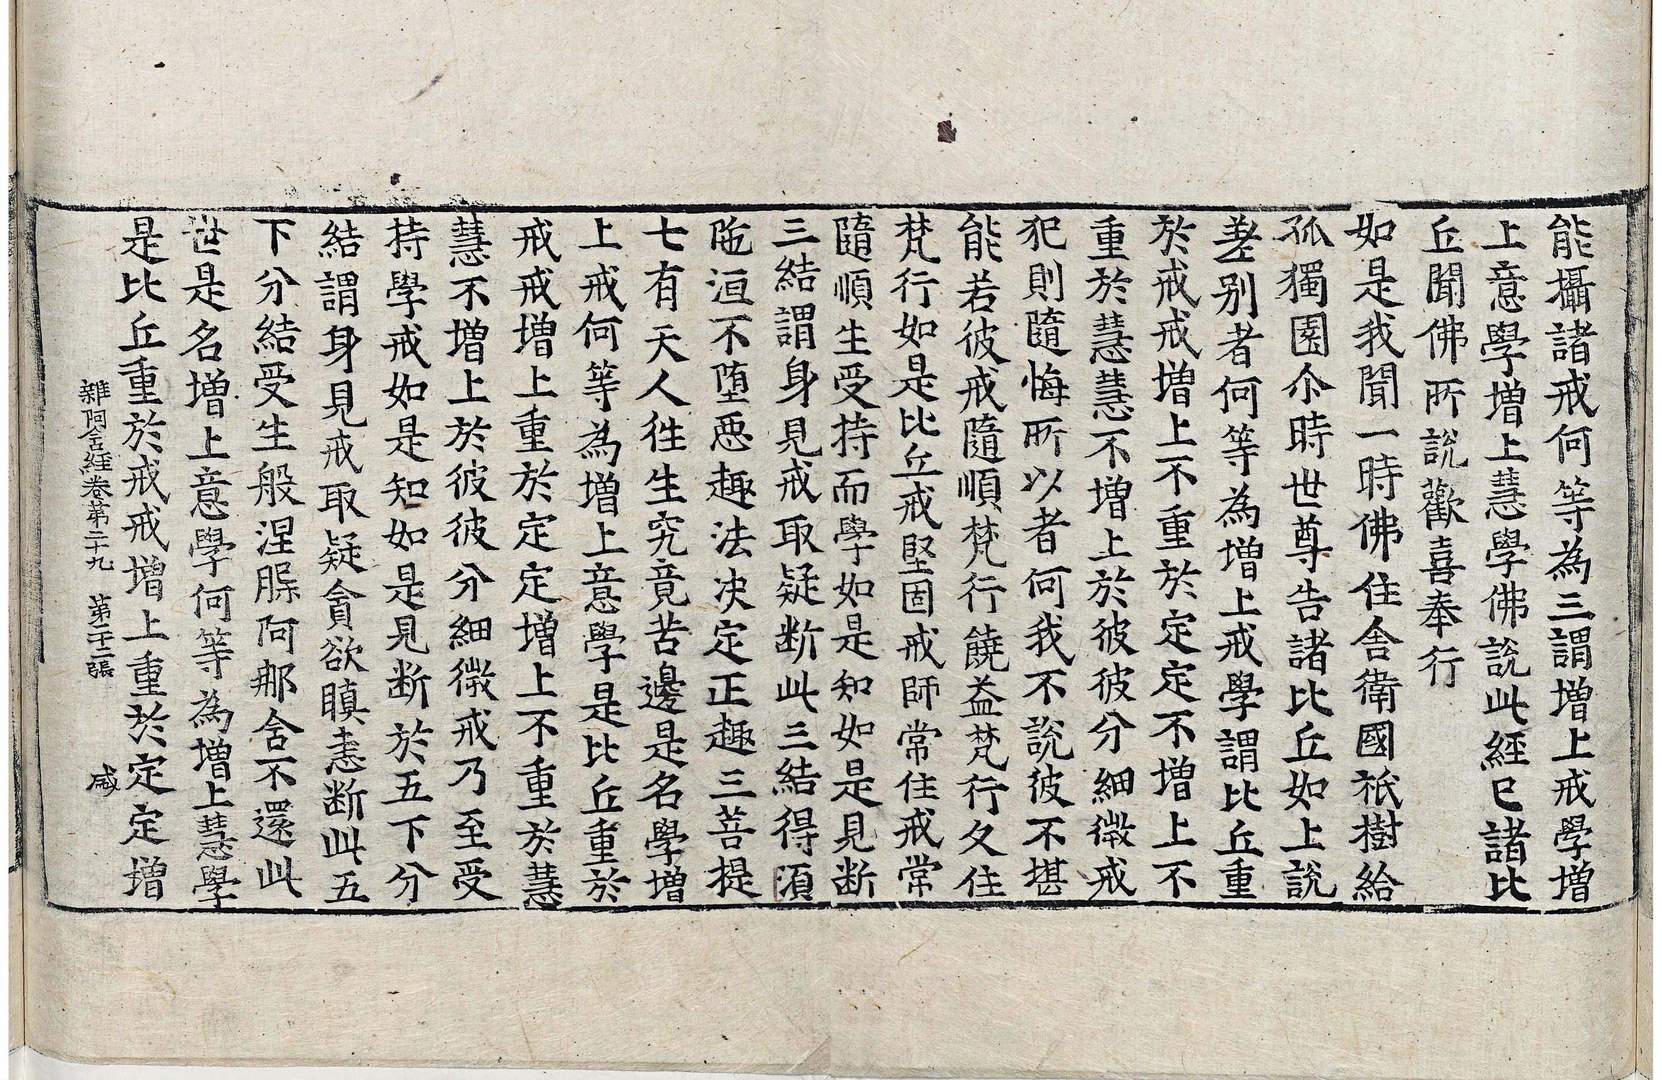 能攝諸戒何等為三謂增上戒學增
上意學增上慧學佛說此經已諸比
丘聞佛所說歡喜奉行
如是我聞一時佛住舍衛國祇樹給
孤獨園尒時世尊告諸比丘如上說
差別者何等為增上戒學謂比丘重
於戒戒增上不重於定定不增上不
重於慧慧不增上於彼彼分細微戒
犯則隨悔所以者何我不說彼不堪
能若彼戒隨順梵行饒益梵行久住
梵行如是比丘戒堅固戒師常住戒常
隨順生受持而學如是知如是見斷
三結謂身見戒取疑斷此三結得須
陁洹不墮惡趣法决定正趣三菩提
七有天人徃生究竟苦邊是名學增
上戒何等為增上意學是比丘重於
戒戒增上重於定定增上不重於慧
慧不增上於彼彼分細微戒乃至受
持學戒如是知如是見斷於五下分
結謂身見戒取疑貪欲瞋恚斷此五
下分結受生般涅槃阿那舍不還此
世是名增上意學何等為增上慧學
是比丘重於戒戒增上重於定定增
雜阿含經卷第二十九 第二十二張 咸